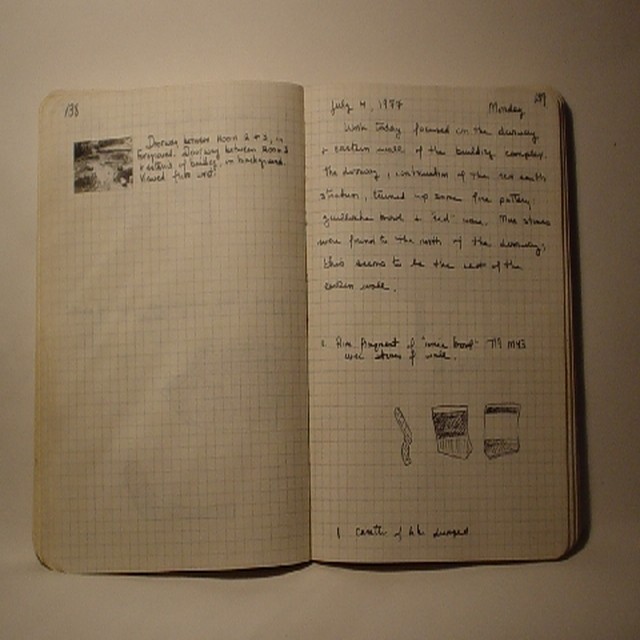 138
Doorway between Room 2 + 3, in
foreground. Doorway between Room 3
+ exterior of building, in background.
Viewed from west.
July 4, 1977 Monday
Work today focused on the doorway
+ eastern wall of the building complex.
The doorway, continuation of the south
turned up some fine pottery,
bowl + "red" ware. More stones
were found to the north of the doorway;
this seems to be the rest of the
eastern wall.
Rim fragment of bowl"
over stones of wall.
1 of